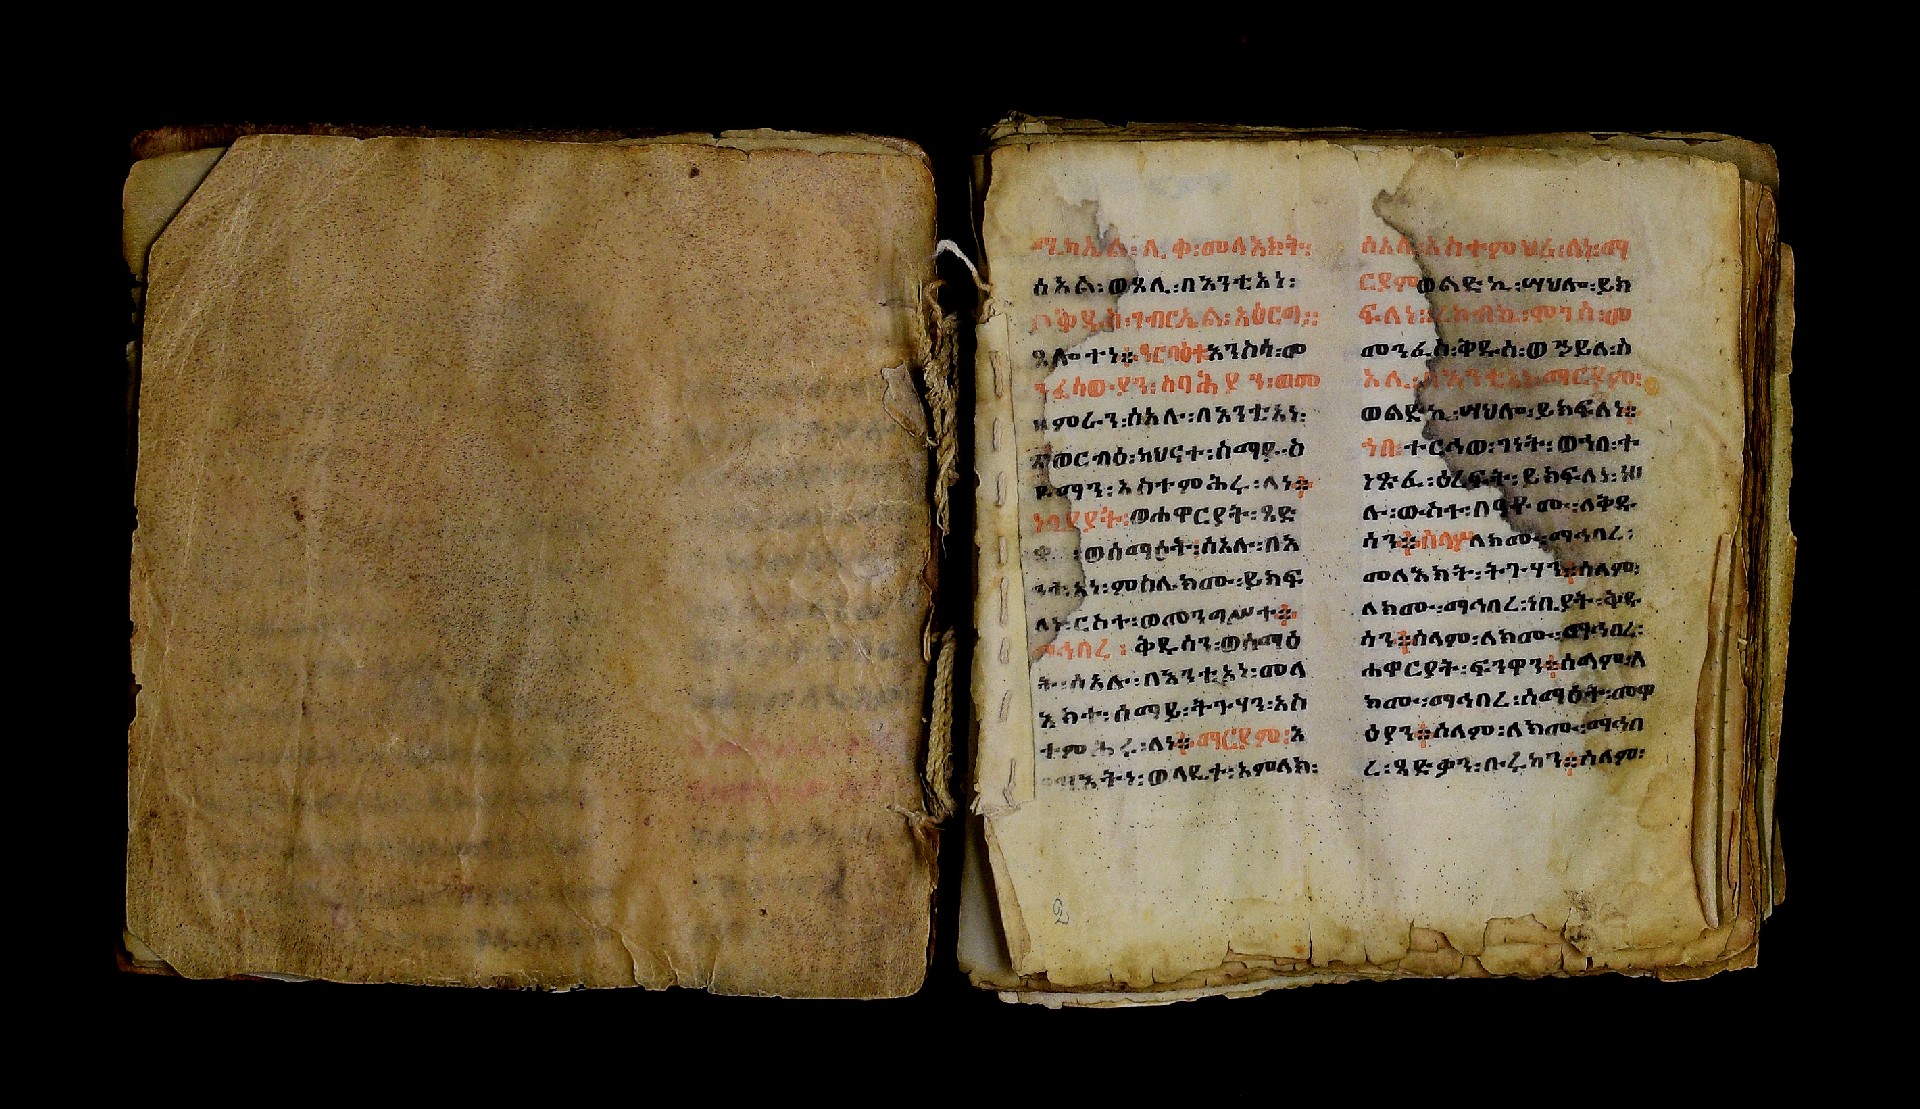 ሚካኤል፡ሊቀ፡መላእክት፡
ሰአል፡ወጸሊ፡በእንቲአነ፡
ቅዱስ፡ገብርኤል፡አዕርግ፡
ጸሎተነ።አርባዕቱእንስሳ፡መ
ንፈሳውያን፡ሰባሕያን፡ወመ
ዘምራን፡ሰአሉ፡በእንቲአነ፡
፳ወርብዕ፡ካህናተ፡ሰማይ፡ዕ
ዩማን፡አስተምሕሩ፡ለነ።
ነቢያት፡ወሐዋርያት፡ጻድ
ወሰማዕት፡ሰአሉ፡በእ
ንቲአነ፡ምስሌክሙ፡ይክፍ
ለነ፡ርስተ፡ወመንግሥተ።
ማኅበረ፡ቅዱሳን፡ወሰማዕ
ት፡ሰአሉ፡በእንቲአነ፡መላ
እክተ፡ሰማይ፡ትጉሃን፡አስ
ተምሕሩ፡ለነ።ማርያም፡እ
ወላዲተ፡አምላክ፡
ሰአሉ፡አስተምህሪ፡ለነ፡ማ
ርያምወልድኪ፡ሣህሎ፡ይክ
ፍለነ፡ረከብኪ፡ሞገሰ፡መ
መንፈሰ፡ቅዱሰ፡ወኃይለ፡ሰ
አሊ፡በእንቲአነ፡ማርያም፡
ወልድኪ፡ሣህሎ፡ይክፍለነ።
ኀበ፡ተርኅወ፡ገነት፡ወኀበ፡ተ
ነጽፈ፡ዕረፍት፡ይክፍለነ፡ዝ
ሉ፡ውስተ፡በዓቶሙ፡ለቅዱ
ሳን።ሰላምለክሙ፡ማኅበረ፡
መላእክት፡ትጉሃን።ሰላም፡
ለክሙ፡ማኅበረ፡ነቢያት፡ቅዱ
ሳን።ሰላም፡ለክሙ፡ማኅበረ፡
ሐዋርያት፡ፍንዋን።ሰላም፡ለ
ክሙ፡ማኅበረ፡ሰማዕት፡መዋ
ዕያን።ሰላም፡ለክሙ፡ማኅበ
ረ፡ጻድቃን፡ቡሩካን።ሰላም፡